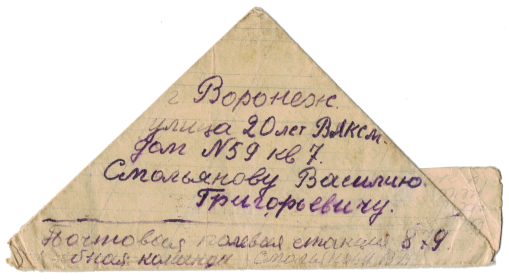 г Воронеж.
улица 20 лет ВЛКСМ.
дом N59 кв 7.
Смольянову Василию.
Григорьевичу.
Почтовая полевая станция 849
команда